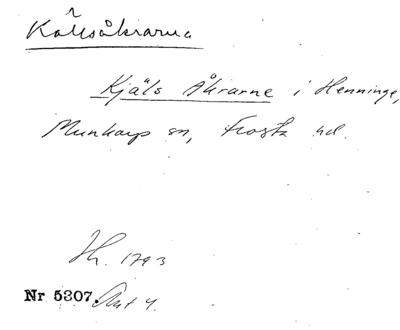 Källsåkrarna
Kjäls Åkrarne i Henninge,
Munkarp sn, Frosta hd.
Hh. 1793
Nr 5307. Akt 4.